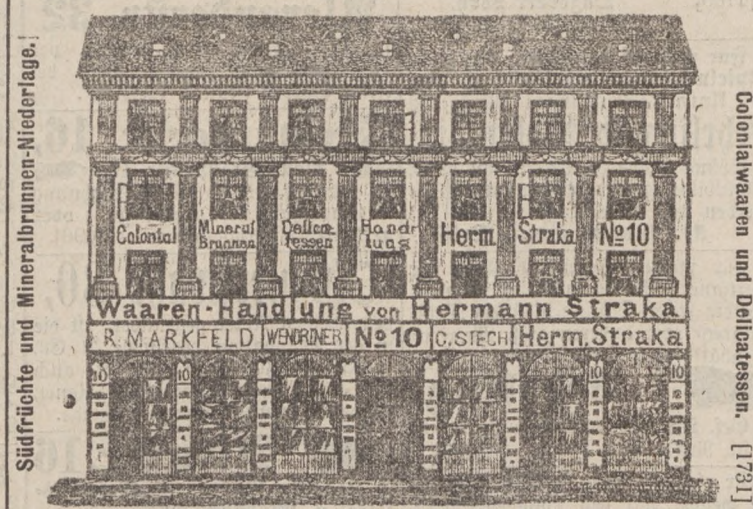 Südfrüchte und Mineralbrunnen-Niederlage.
Colonial Mineral Brunnen Delicatessen Handlung Herm. Straka No 10
Waaren-Handlung von Hermann Straka
R. MARKFELD WENDRINER No 10 C. STECH Herm. Straka
10 10 10 10
Colonialwaaren und Delicatessen. [1731]